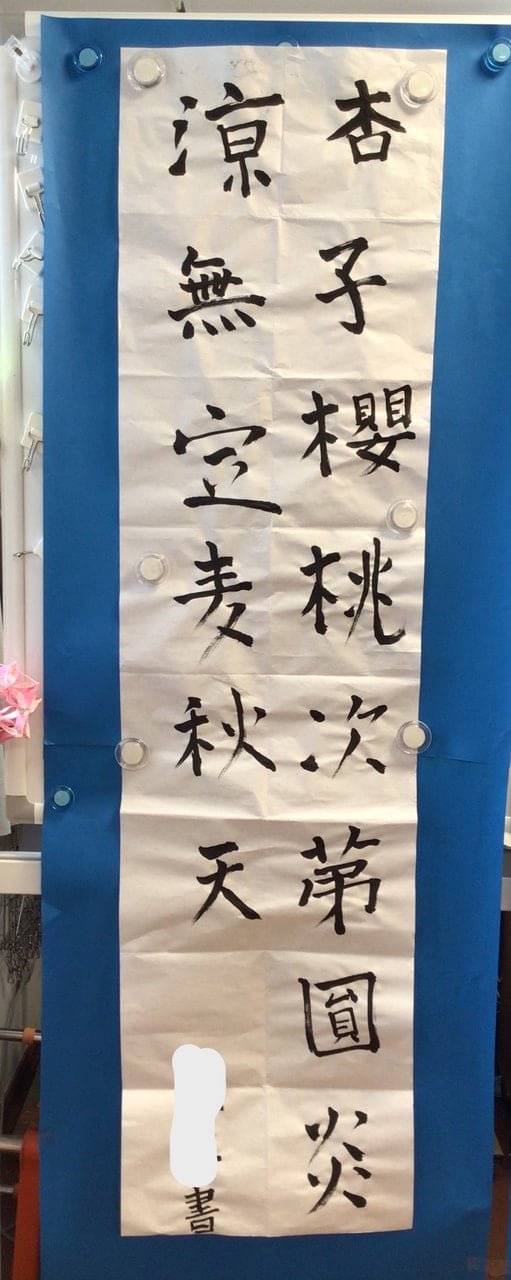 杏子櫻桃次第圓炎
涼無定麦秋天
書